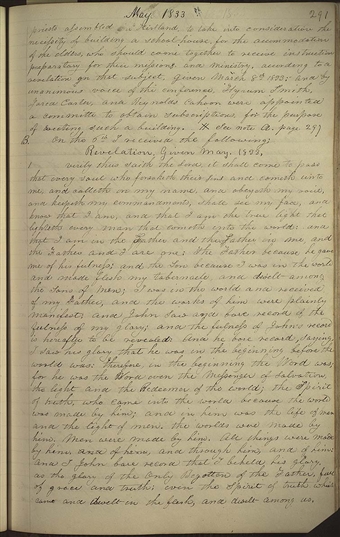 May 1833 291
priests assembled in Kirtland, to take into consideration the
necessity of building a school house, for the accommodation
of the elders, who should come together to receive instruction
preparatory for their missions and ministry, according to a
revelation on that subject, given March 8th 1833; and by
unanimous voice of the conference, Hyrum Smith,
Jared Carter, and Reynolds Cahoon were appointed
a committe to obtain subscriptions for the purpose
of erecting such a building. see note page 29)
On the 6th I received the following;
Revelation Given May, 1833,
verily thus saith the Lord it shall come to pass
that every soul who forsaketh their sins and cometh unto
me and calleth on my name and obeyeth my voice,
and keepeth my commandments, shall see my face, and
know that I am, and that I am the true light that
lighteth every man that cometh into the world: and
that I am in the Father and the Father in me, and
the Father and I are one; the Father because he gave
me of his fulness; and the Son because I was in the world
and made flesh my tabernacle, and dwelt among
the Sons of Men; I was in the world and received
of my Father, and the works of him were plainly
manifest: and John saw and bare record of the
fulness of my glory; and the fulness of John's record
is hereafter to be revealed: And he bare record, saying,
I saw his glory that he was in the beginning before the
world was: therefore, in the beginning the Word was;
for he was the Word even the messenger of Salvation,
the light and the Redeemer of the world; the Spirit
of truth, who came into the world because the world
was made by him; and in him was the life of men
and the light of men. the worlds were made by
him. Men were made by him. All things were made
by him and through him, and of him:
and I John bare record that I beheld his glory,
as the glory of the Only Begotten of the Father, full
of grace and truth, even the Spirit of truth which
came and dwelt in the flesh, and dwelt among us.